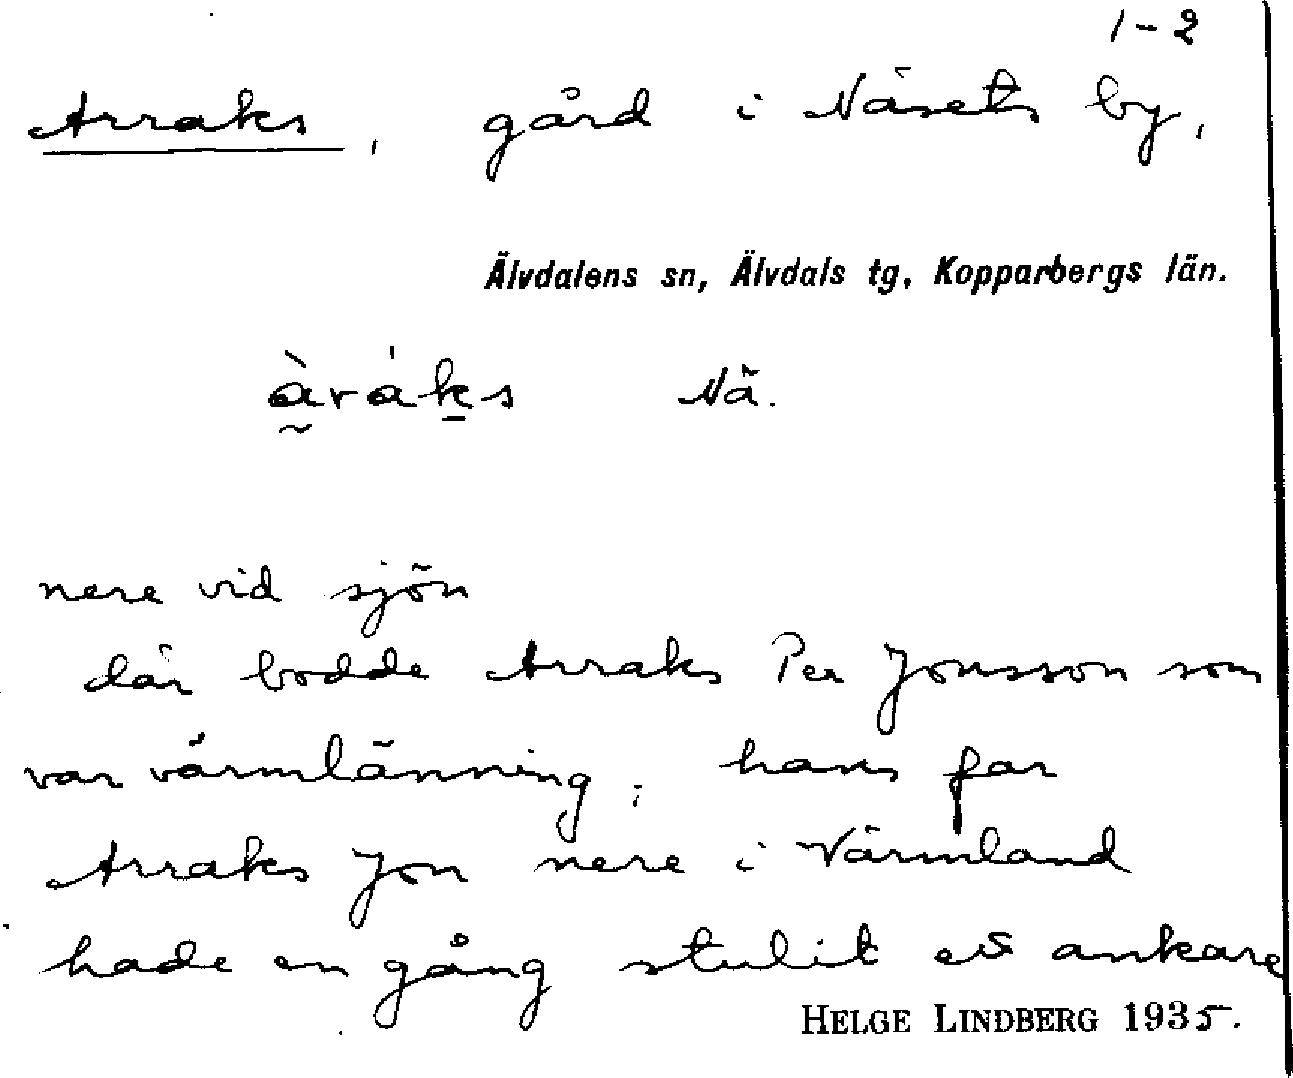 1-2
Arraks, gård i Näsets by,
Älvdalens sn, Älvdals tg, Kopparbergs län.
àráks Nä.
nere vid sjön
där bodde Arraks Per Jonsson som
var värmlänning; hans far
Arraks Jon nere i Värmland
hade en gång stulit ett ankare
HELGE LINDBERG 1935.